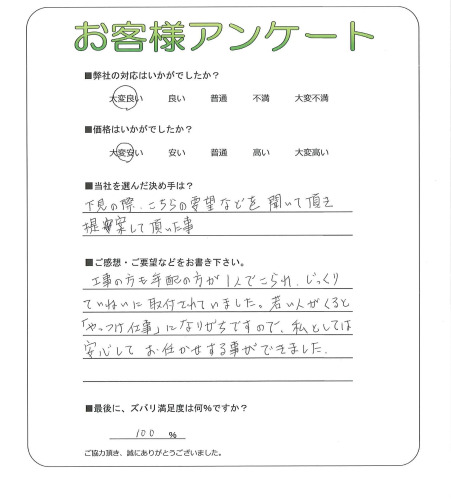 お客様アンケート
■弊社の対応はいかがでしたか？
大変良い 良い 普通 不満 大変不満
■価格はいかがでしたか？
大変安い 安い 普通 高い 大変高い
■当社を選んだ決め手は？
下見の際、こちらの要望などを聞いて頂き
提案して頂いた事
■ご感想・ご要望などをお書き下さい。
工事の方も年配の方が1人でこられ、じっくり
ていねいに取付されていました。若い人がくると
「やっつけ仕事」になりがちですので、私としては
安心してお任かせする事ができました。
■最後に、ズバリ満足度は何%ですか？
100 %
ご協力頂き、誠にありがとうございました。